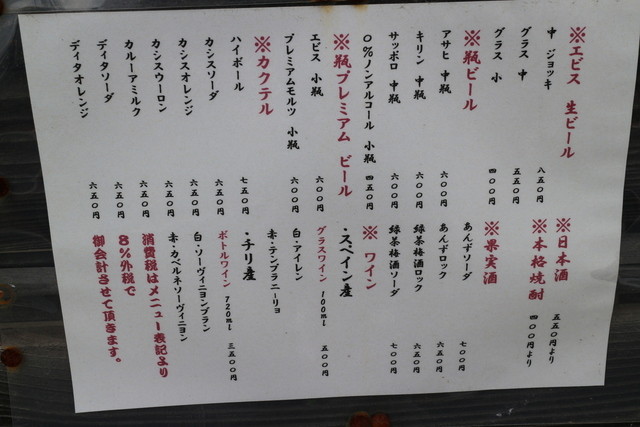 ※エビス 生ビール
中 ジョッキ 八五〇円
グラス 中 五五〇円
グラス 小 四〇〇円
※瓶ビール
アサヒ 中瓶 六〇〇円
キリン 中瓶 六〇〇円
サッポロ 中瓶 六〇〇円
0%ノンアルコール 小瓶 四五〇円
※瓶プレミアム ビール
エビス 小瓶 六〇〇円
プレミアムモルツ 小瓶 六〇〇円
※カクテル
ハイボール 七五〇円
カシスソーダ 六五〇円
カシスオレンジ 六五〇円
カシスウーロン 六五〇円
カルーアミルク 六五〇円
ディタソーダ 六五〇円
ディタオレンジ 六五〇円
※日本酒 五五〇円より
※本格焼酎 四〇〇円より
※果実酒
あんずソーダ 七〇〇円
あんずロック 六五〇円
緑茶梅酒ロック 六五〇円
緑茶梅酒ソーダ 七〇〇円
※ ワイン
・スペイン産
グラスワイン 100ml 五〇〇円
白・アイレン
赤・テンプラニーリョ
・チリ産
ボトルワイン 720ml 三五〇〇円
白・ソーヴィニヨンブラン
赤・カベルネソーヴィニヨン
消費税はメニュー表記より
8%外税で
御会計させて頂きます。